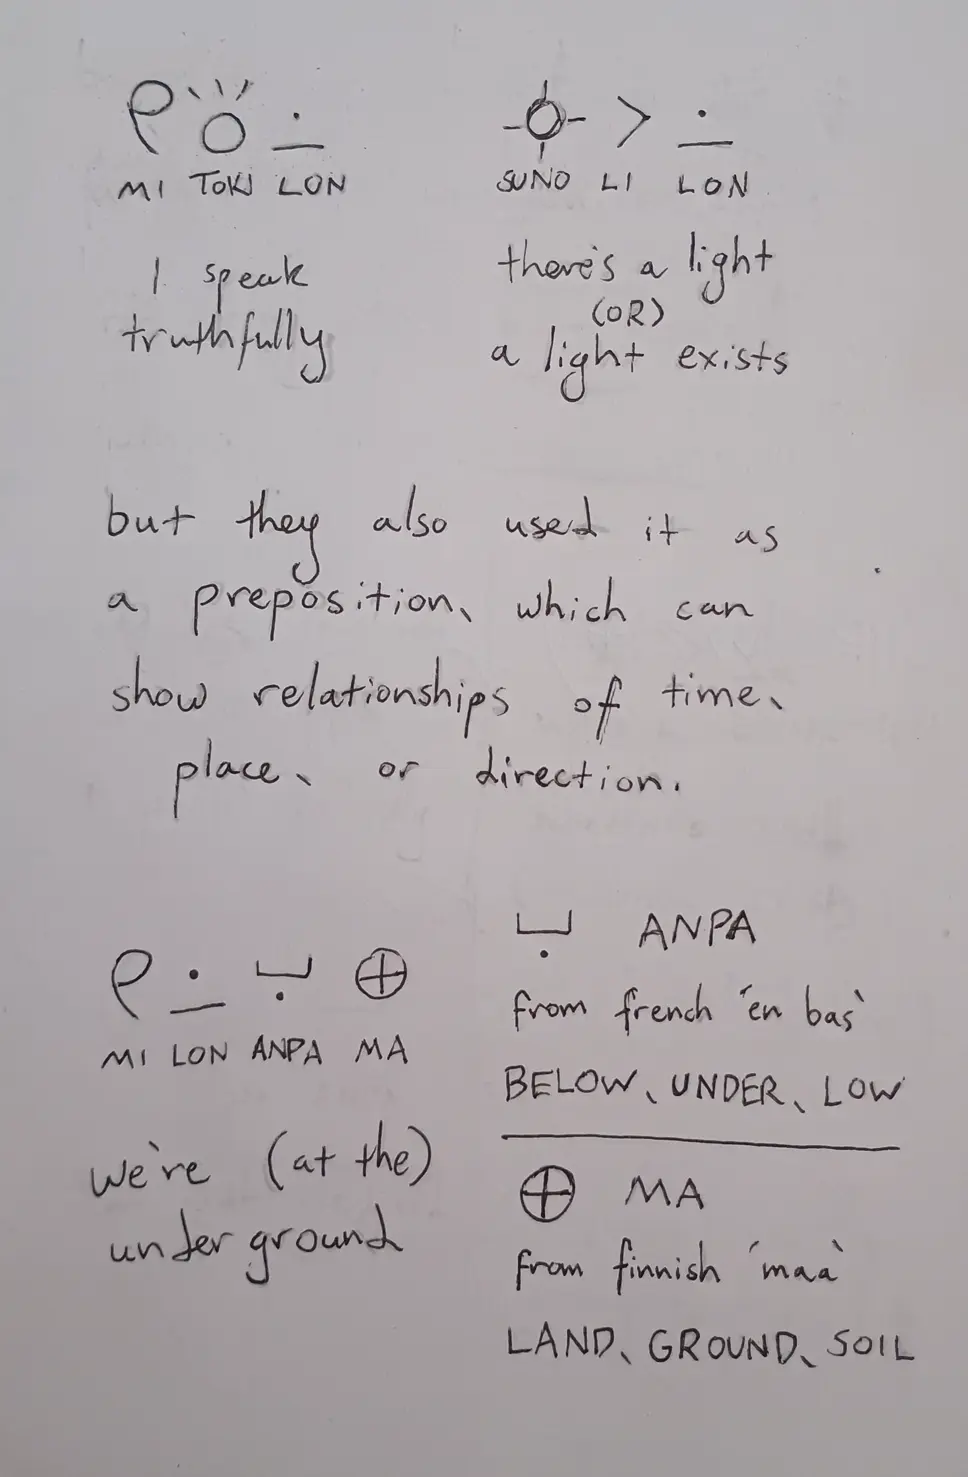 MI TOKI LON
I speak
truthfully
SUNO LI LON
there's a light
(OR)
a light exists
but they also used it as
a preposition、which can
show relationships of time、
place、or direction.
MI LON ANPA MA
we're (at the)
underground
ANPA
from french ´en bas`
BELOW、UNDER、LOW
MA
from finnish ´maa`
LAND、GROUND、SOIL